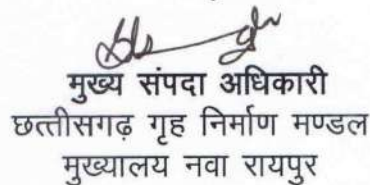 मुख्य संपदा अधिकारी
छत्तीसगढ़ गृह निर्माण मण्डल
मुख्यालय नवा रायपुर